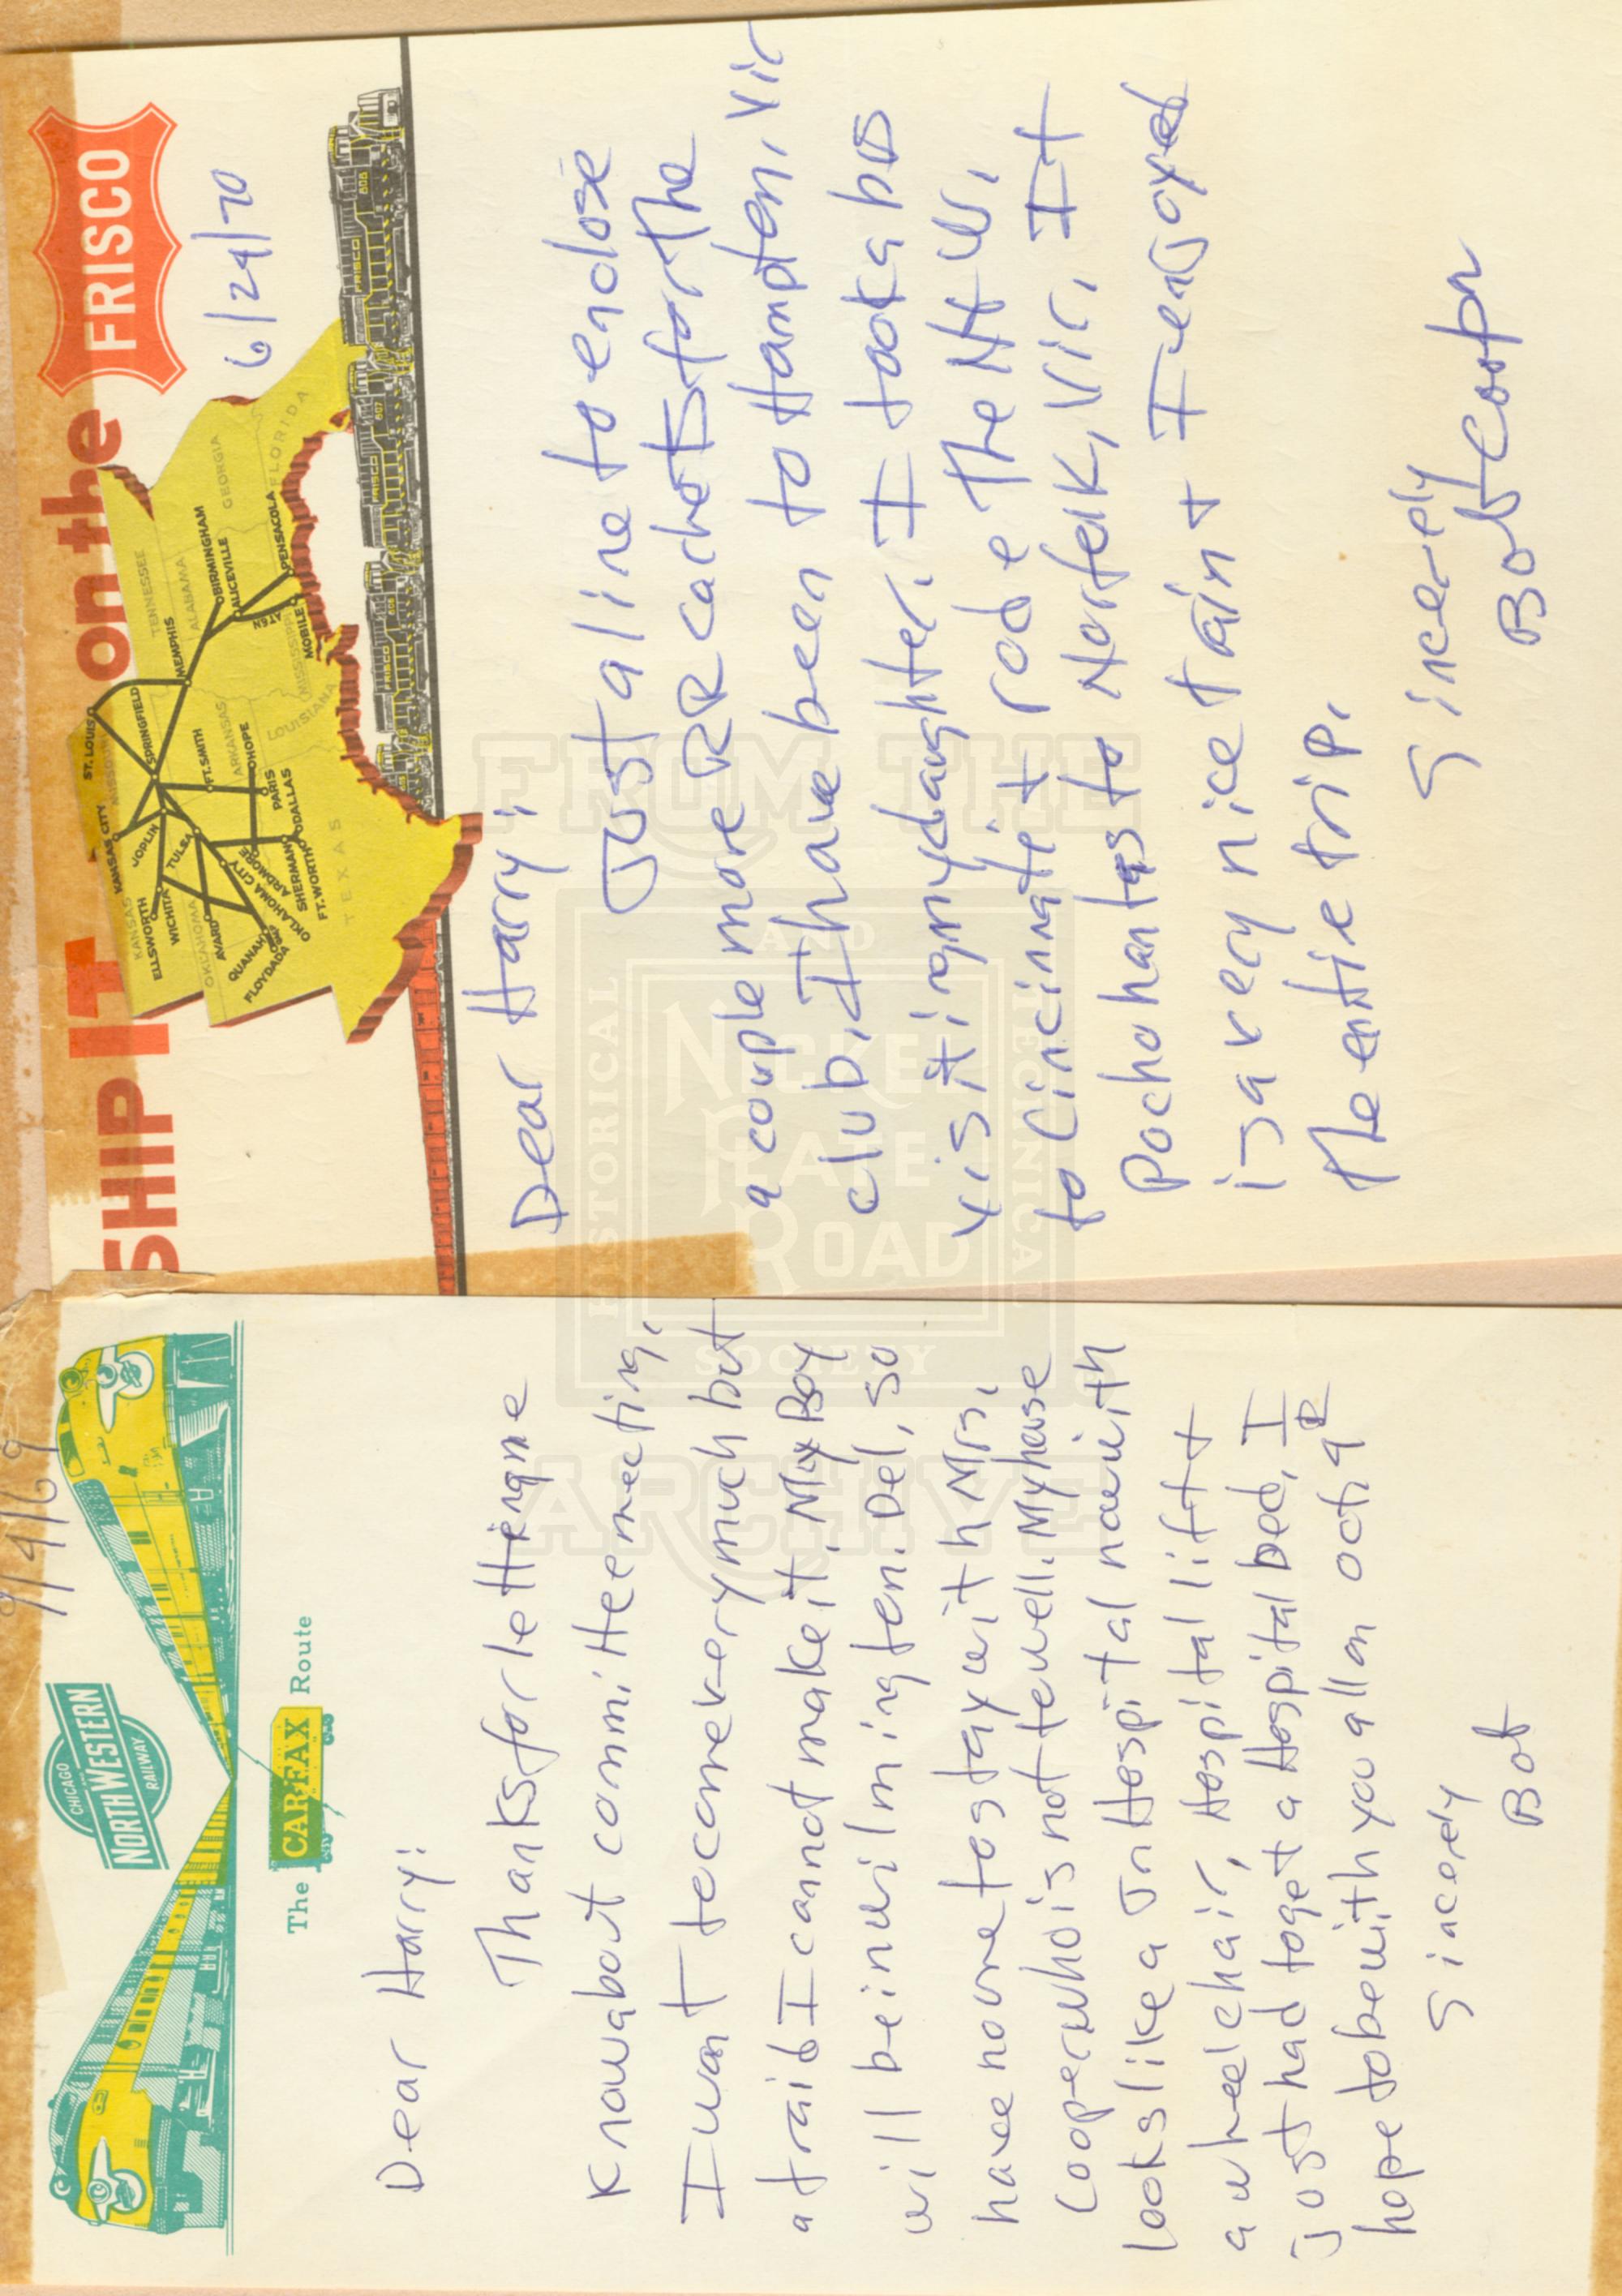 9/4/69
CHICAGO
AND
NORTH WESTERN
RAILWAY
The CARFAX Route
Dear Harry:
Thanks for letting me
know about committee meeting.
I want to come very much but
afraid I cannot make it. My Boy
will be in Wilmington. Del, so
have no one to stay with Mrs.
Cooper who is not to well. My house
looks like a Jr Hospital now with
a wheel chair, Hospital lift +
just had to get a Hospital bed. I
hope to be with you all on Oct 9th
Sincerely
Bob
SHIP IT on the FRISCO
KANSAS CITY
ST. LOUIS
KANSAS
MISSOURI
TENNESSEE
ELLSWORTH
WICHITA
JOPLIN
SPRINGFIELD
MEMPHIS
OKLAHOMA
TULSA
FT. SMITH
ARKANSAS
ALABAMA
BIRMINGHAM
GEORGIA
AVARD
OKLAHOMA CITY
ARDMORE
HOPE
PARIS
MISSISSIPPI
ALICEVILLE
AT&N
QUANAH
FLOYDADA
SHERMAN
DALLAS
FT. WORTH
LOUISIANA
MOBILE
PENSACOLA
FLORIDA
TEXAS
FRISCO
FRISCO
FRISCO
607
FRISCO
606
6/24/70
Dear Harry:
Just a line to enclose
a couple more RR cachets for the
club. I have been to Hampton, Vir
visiting my daughter. I took a bus
to Cincinnati + rode the N+W.
Pochohantas to Norfolk, Vir. It
is a very nice train + I enjoyed
the entire trip.
Sincerely
Bob Cooper
FROM THE
NICKEL PLATE ROAD
HISTORICAL AND TECHNICAL SOCIETY
ARCHIVE